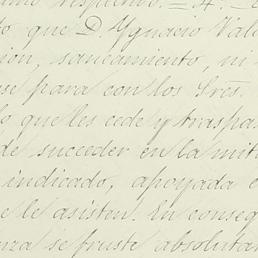 respectivo. = 4.ª =
to que D. Ygnacio Val
ion, saneamiento, ni
se para con los Sres.
lo que les cede y traspas
de succeder en la mit
indicado, apoyada e
e le asisten. En conseq
nza se fruste absolutam